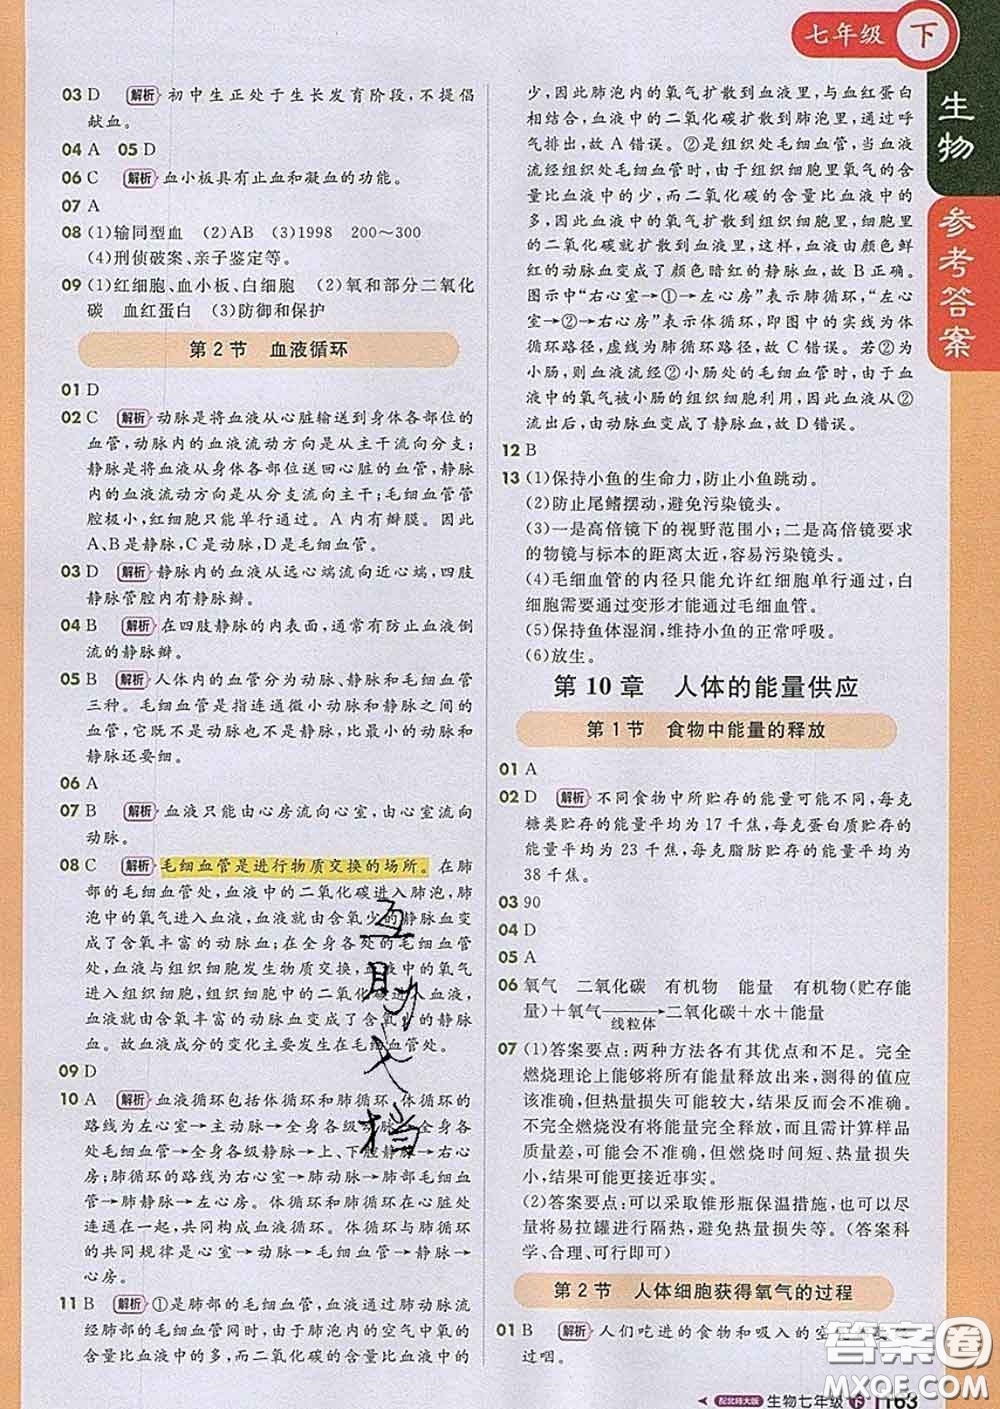 七年级 下
生物
参考答案
03 D 解析 初中生正处于生长发育阶段,不提倡
献血。
04 A 05 D
06 C 解析 血小板具有止血和凝血的功能。
07 A
08 (1)输同型血 (2)AB (3)1998 200~300
(4)刑侦破案、亲子鉴定等。
09 (1)红细胞、血小板、白细胞 (2)氧和部分二氧化
碳 血红蛋白 (3)防御和保护
第2节 血液循环
01 D
02 C 解析 动脉是将血液从心脏输送到身体各部位的
血管,动脉内的血液流动方向是从主干流向分支;
静脉是将血液从身体各部位送回心脏的血管,静脉
内的血液流动方向是从分支流向主干;毛细血管管
腔极小,红细胞只能单行通过。A内有瓣膜。因此
A、B是静脉,C是动脉,D是毛细血管。
03 D 解析 静脉内的血液从远心端流向近心端,四肢
静脉管腔内有静脉瓣。
04 B 解析 在四肢静脉的内表面,通常有防止血液倒
流的静脉瓣。
05 B 解析 人体内的血管分为动脉、静脉和毛细血管
三种。毛细血管是指连通微小动脉和静脉之间的
血管,它既不是动脉也不是静脉,比最小的动脉和
静脉还要细。
06 A
07 B 解析 血液只能由心房流向心室,由心室流向
动脉。
08 C 解析 毛细血管是进行物质交换的场所。在肺
部的毛细血管处,血液中的二氧化碳进入肺泡,肺
泡中的氧气进入血液,血液就由含氧少的静脉血变
成了含氧丰富的动脉血;在全身各处的毛细血管
处,血液与组织细胞发生物质交换,血液中的氧气
进入组织细胞,组织细胞中的二氧化碳进入血液,
血液就由含氧丰富的动脉血变成了含氧少的静脉
血。故血液成分的变化主要发生在毛细血管处。
09 D
10 A 解析 血液循环包括体循环和肺循环。体循环的
路线为左心室→主动脉→全身各级动脉→全身各
处毛细血管→全身各级静脉→上、下腔静脉→右心
房;肺循环的路线为右心室→肺动脉→肺部毛细血
管→肺静脉→左心房。体循环和肺循环在心脏处
连通在一起,共同构成血液循环。体循环与肺循环
的共同规律是心室→动脉→毛细血管→静脉→
心房。
11 B 解析 ①是肺部的毛细血管,当血液由肺动脉流
经肺部的毛细血管网时,由于肺泡内的空气中氧的
含量比血液中的多,而二氧化碳的含量比血液中的
少,因此肺泡内的氧气扩散到血液里,与血红蛋白
相结合,血液中的二氧化碳扩散到肺泡里,通过呼
气排出,故A错误。②是组织处毛细血管,当血液
流经组织处毛细血管时,由于组织细胞里氧气的含
量比血液中的少,而二氧化碳的含量比血液中的
多,因此血液中的氧气扩散到组织细胞里,细胞里
的二氧化碳就扩散到血液里,血液由颜色鲜
红的动脉血变成了颜色暗红的静脉血,故B正确。
图示中“右心室→①→左心房”表示肺循环,“左心
室→②→右心房”表示体循环,即图中的实线为体
循环路径,虚线为肺循环路径,故C错误。若②为
小肠,则血液流经②小肠处的毛细血管时,由于血
液中的氧气被小肠的组织细胞利用,因此血液从②
流出后,由动脉血变成了静脉血,故D错误。
12 B
13 (1)保持小鱼的生命力,防止小鱼跳动。
(2)防止尾鳍摆动,避免污染镜头。
(3)一是高倍镜下的视野范围小;二是高倍镜要求
的物镜与标本的距离太近,容易污染镜头。
(4)毛细血管的内径只能允许红细胞单行通过,白
细胞需要通过变形才能通过毛细血管。
(5)保持鱼体湿润,维持小鱼的正常呼吸。
(6)放生。
第10章 人体的能量供应
第1节 食物中能量的释放
01 A
02 D 解析 不同食物中所贮存的能量可能不同,每克
糖类贮存的能量平均为17千焦,每克蛋白质贮存的
能量平均为23千焦,每克脂肪贮存的能量平均为
38千焦。
03 90
04 D
05 A
06 氧气 二氧化碳 有机物 能量 有机物(贮存能
量)+氧气 线粒体→ 二氧化碳+水+能量
07 (1)答案要点:两种方法各有其优点和不足。完全
燃烧理论上能够将所有能量释放出来,测得的值应
该准确,但实际可能较大,结果可能不太准确。
不完全燃烧没有将能量完全释放,需要计算样品
质量差,可能不太准确。但两次都是差值,热量损失
小,结果可能更接近事实。
(2)答案要点:可以采取锥形瓶保温措施,也可以
尝试将易拉罐进行隔热,避免热量损失等。(答案科
学、合理、可行即可)
第2节 人体细胞获得氧气的过程
01 B 解析 人们吃进的食物和吸入的空气都要
过咽。
互助文档
答案圈
MXQE.COM
配北师大版 生物七年级 下 163